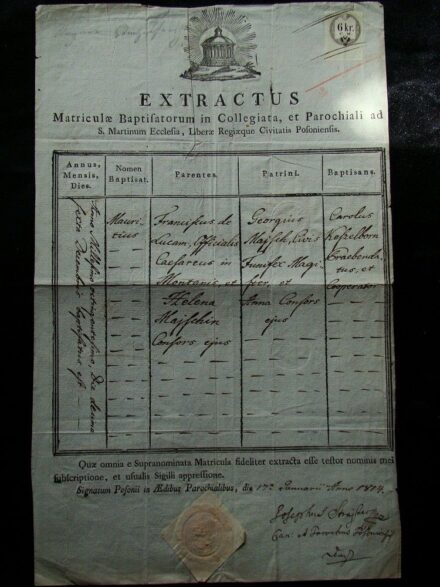 6 kr.
EXTRACTUS
Matriculæ Baptisatorum in Collegiata, et Parochiali ad
S. Martinum Ecclesia, Liberæ Regiæque Civitatis Posoniensis.
Annus, Mensis, Dies.
Nomen Baptisat.
Parentes.
Patrini.
Baptisans.
Anno Millesimo octingentesimo, Die decima
sexta Decembris baptisatus est
Mauri-
tius
Franciscus de
Lucam, Officialis
Caesareus in
Montanis, et
Helena
Maischin
Consors ejus
Georgius
Maisch, Civis
Funifex Magi-
ster, et
Anna Consors
ejus
Carolus
Praebenda-
tus, et
Cooperator
Quæ omnia e Supranominata Matricula fideliter extracta esse testor nominis mei
subscriptione, et usualis Sigilli appressione.
Signatum Posonii in Ædibus Parochialibus, die 17a Januarii Anno 1814.
Josephus